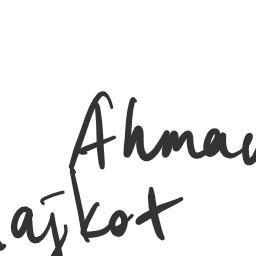 Ahmad
ajkot